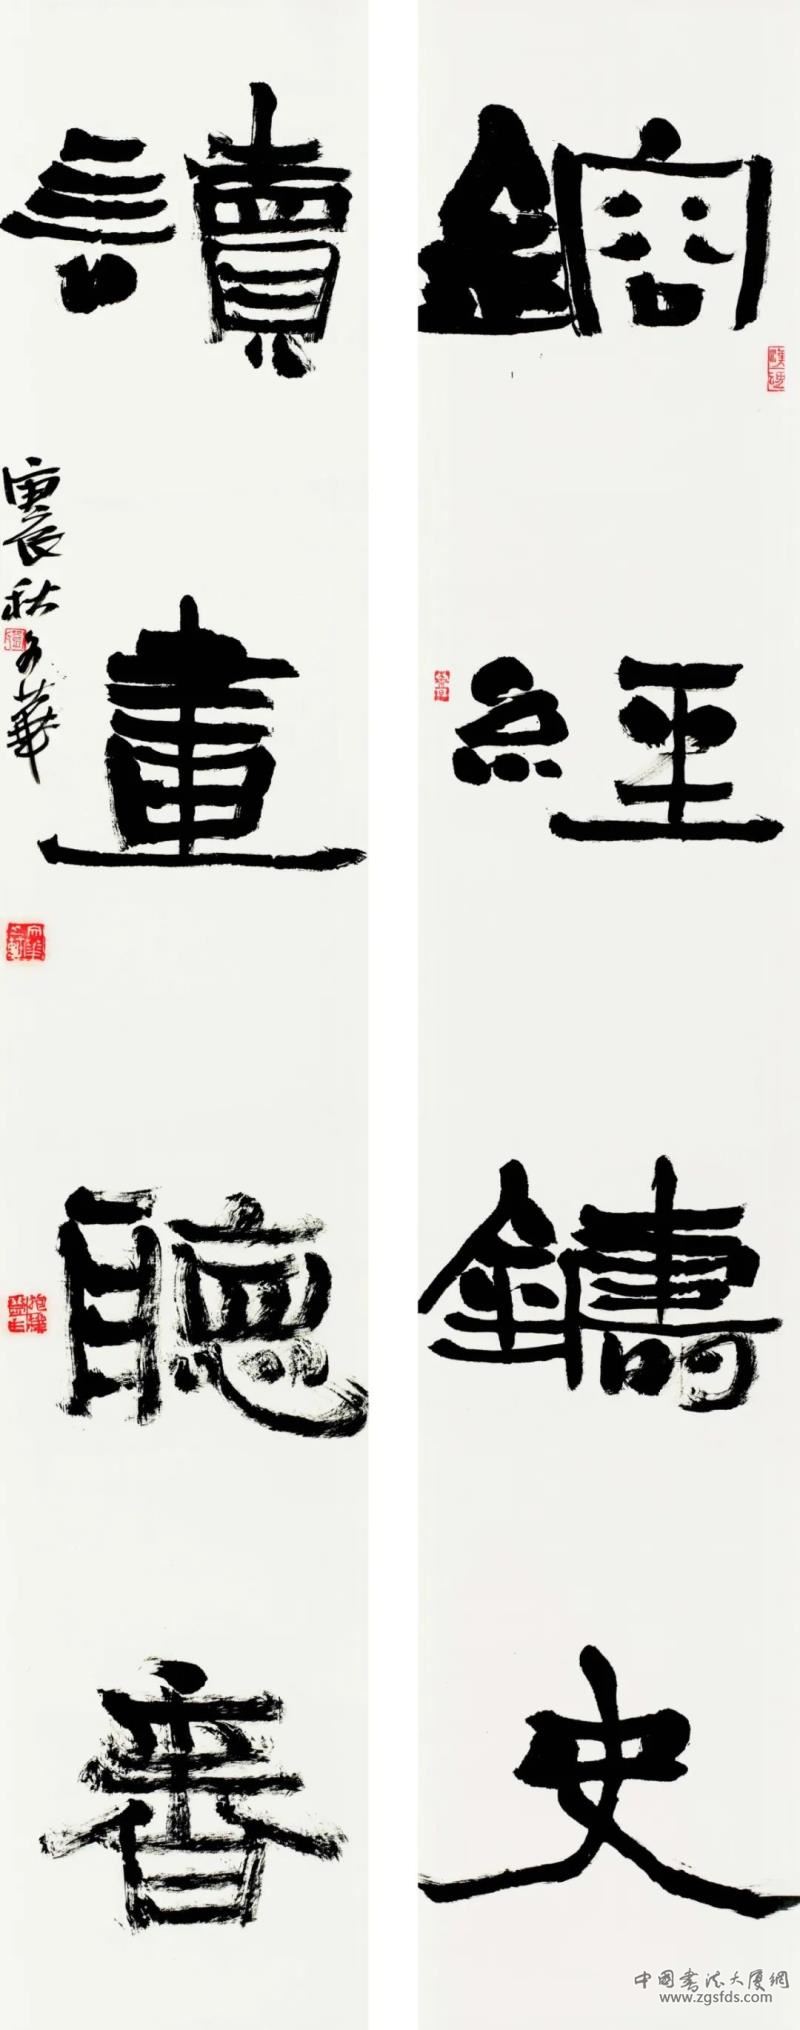 鎔經鑄史
讀畫聽香
庚辰秋文華
中國書法大廈網
www.zgsfds.com